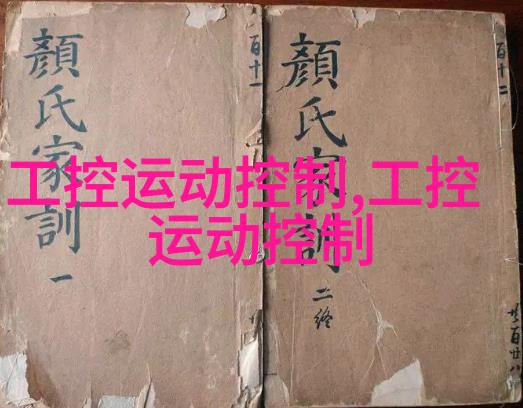 顏氏家訓
一
百十一
顏氏家訓
二終
百十二
工控运动控制,工控
运动控制